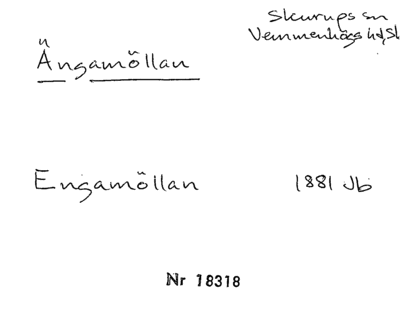 Skurups sn
Vemmenhögs hd, Sk
Ängamöllan
Engamöllan 1881 Jb
Nr 18318